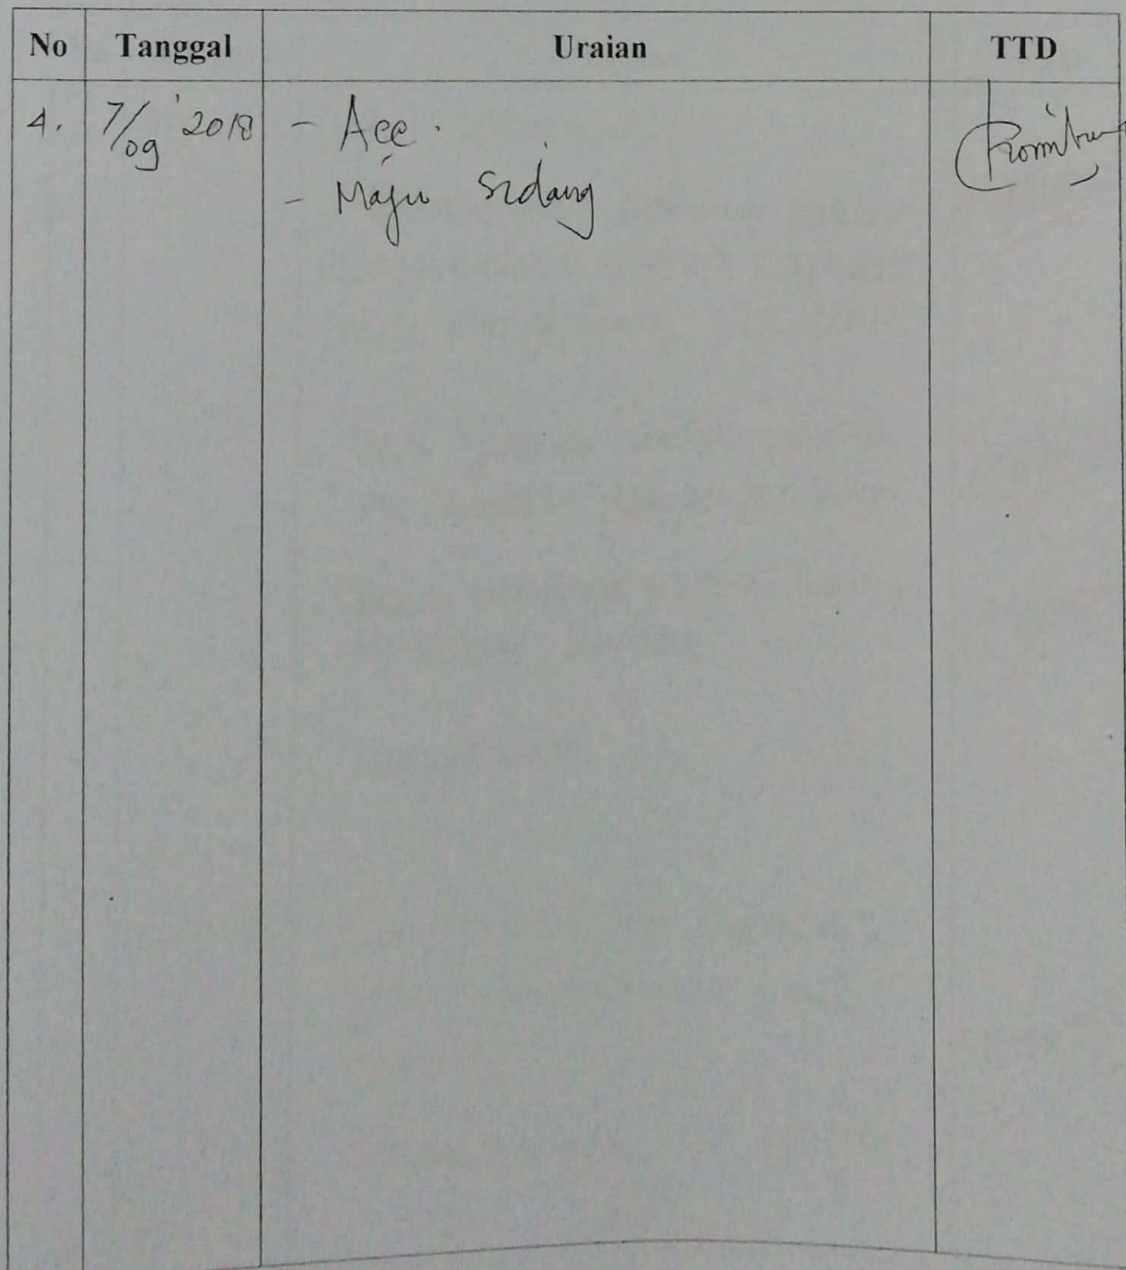 No Tanggal Uraian TTD
4. 7/09 '2018 - Acc.
- Maju sidang